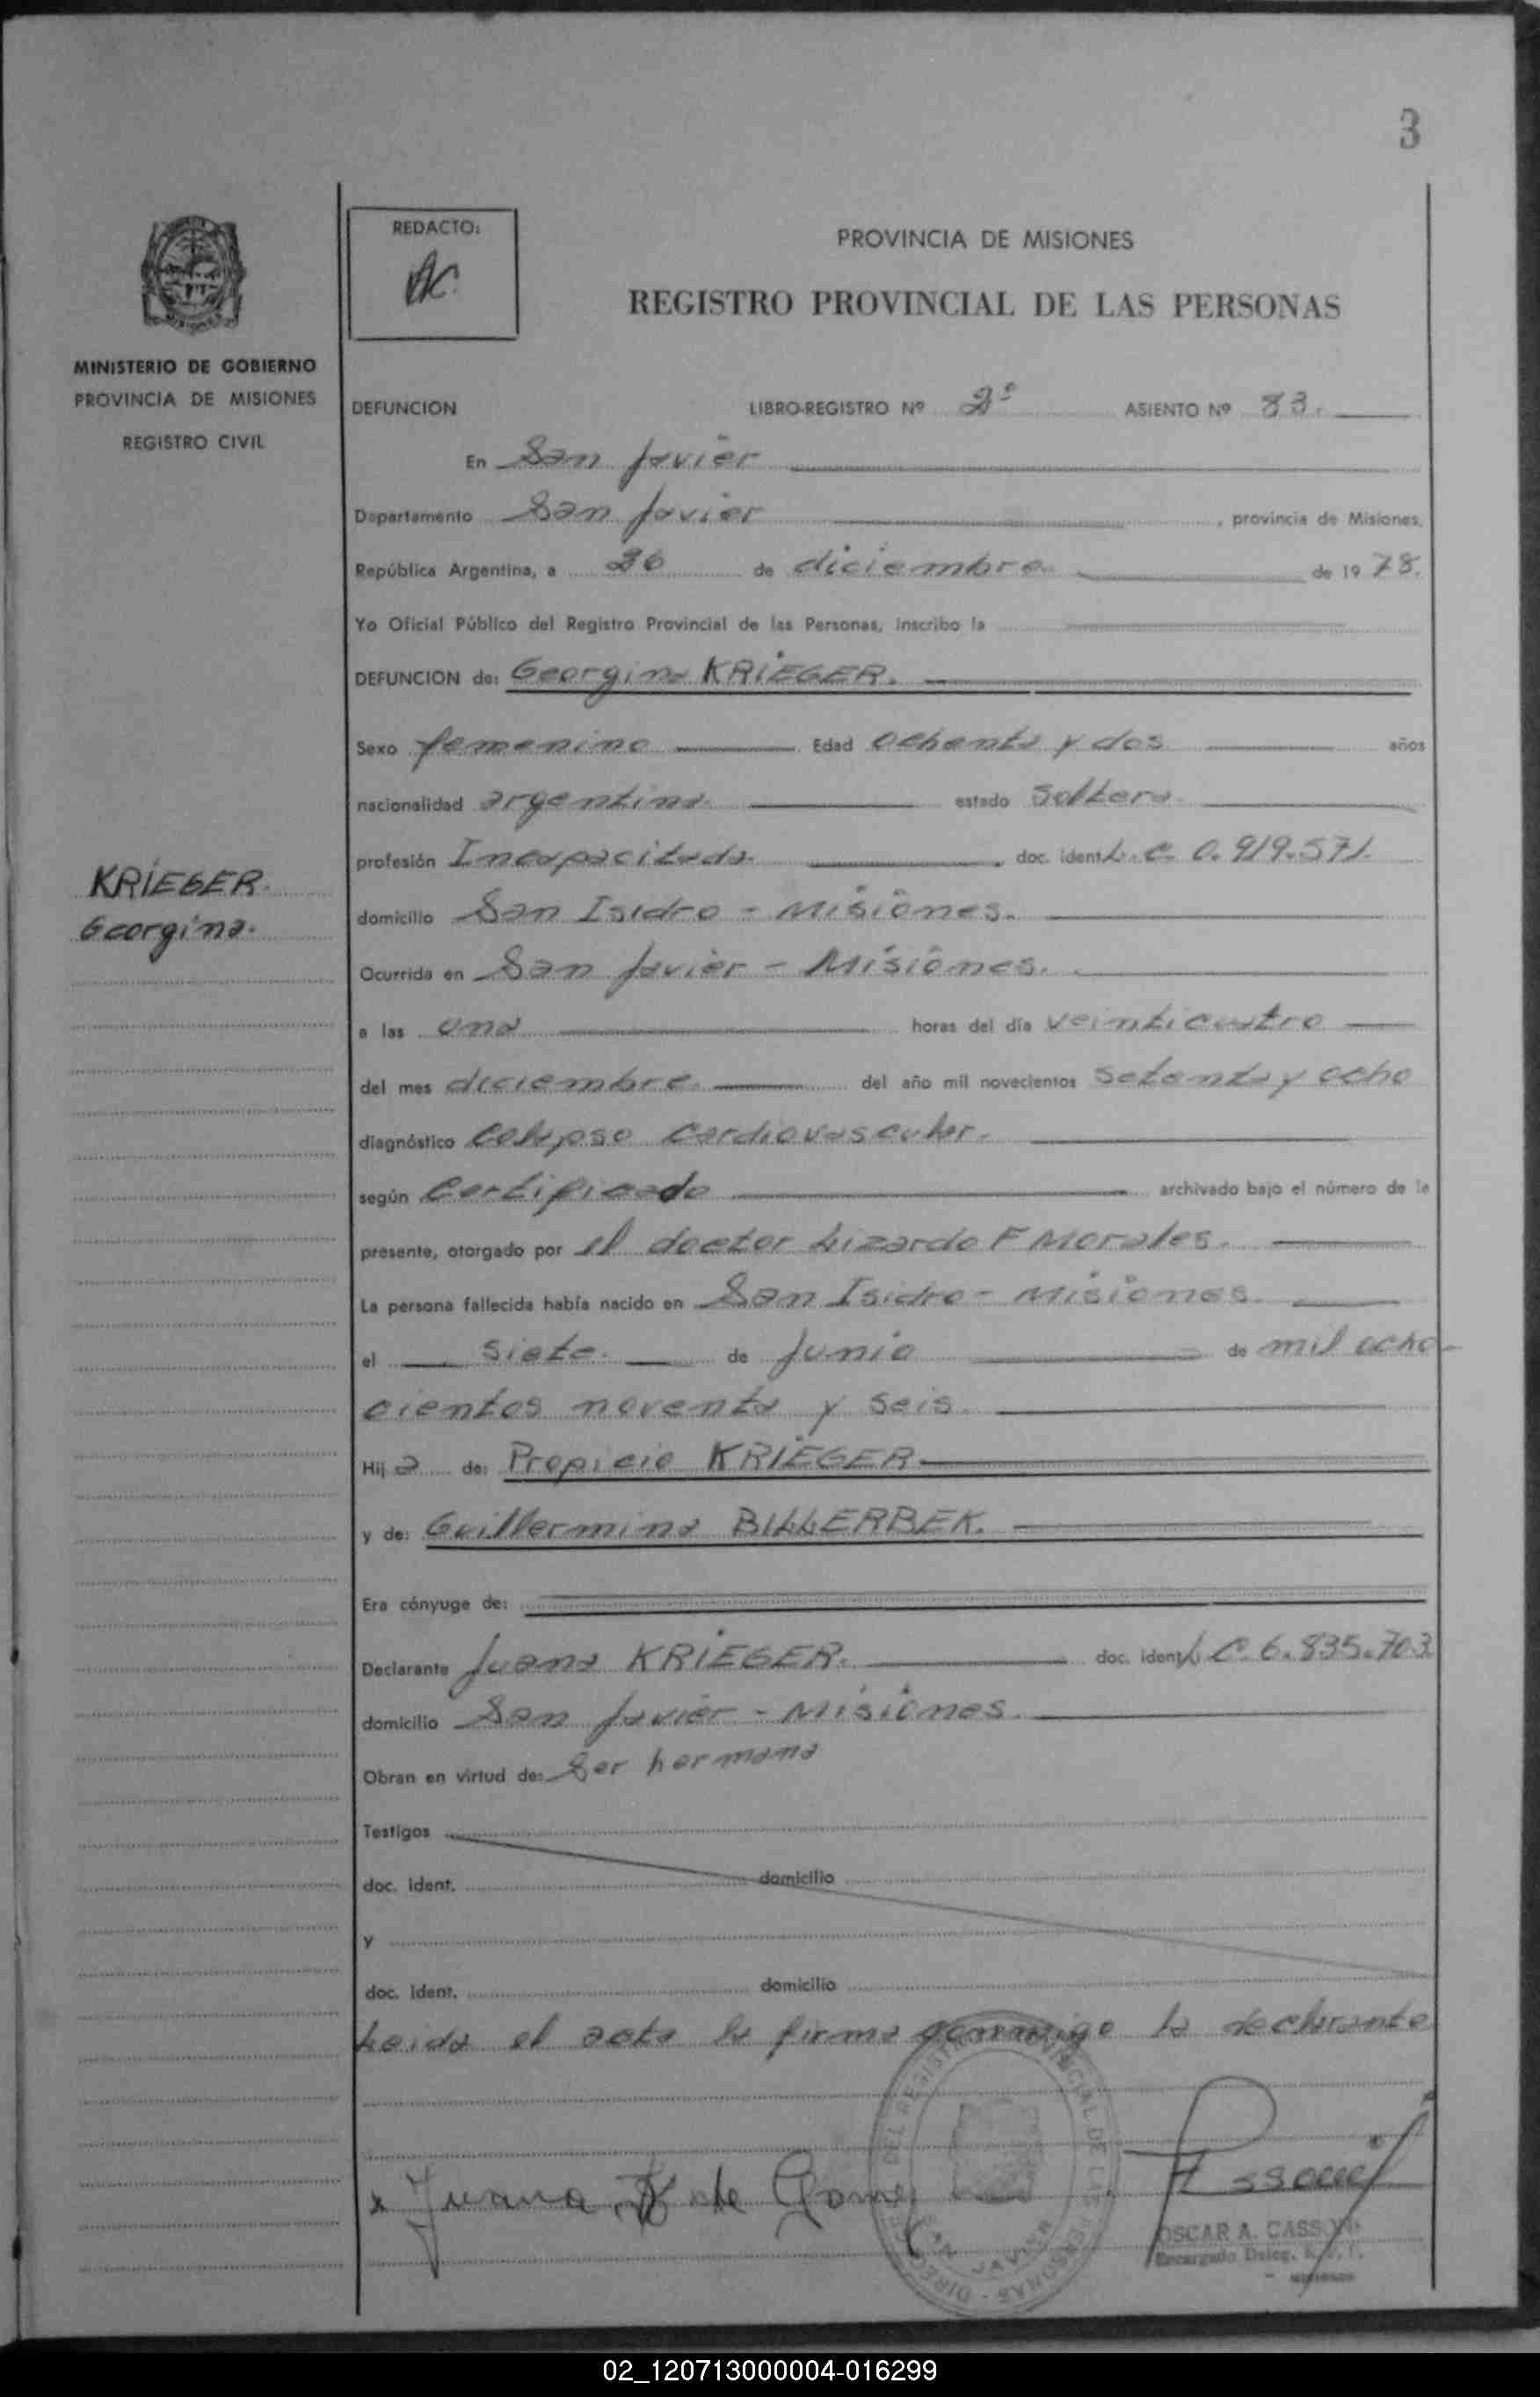 3
REDACTO:
AC.
PROVINCIA DE MISIONES
REGISTRO PROVINCIAL DE LAS PERSONAS
MINISTERIO DE GOBIERNO
PROVINCIA DE MISIONES
REGISTRO CIVIL
DEFUNCION LIBRO-REGISTRO Nº 2º ASIENTO Nº 83.
En San Javier
Departamento San Javier, provincia de Misiones,
República Argentina, a 26 de diciembre de 1978.
Yo Oficial Público del Registro Provincial de las Personas, inscribo la
DEFUNCION de: Georgina KRIEGER.
Sexo femenino Edad ochenta y dos años
nacionalidad argentina. estado Soltera.
profesión Incapacitada. doc. ident. L. C. 0.919.571.
KRIEGER.
Georgina.
domicilio San Isidro - Misiones.
Ocurrida en San Javier - Misiones.
a las una horas del día veinticuatro
del mes diciembre. del año mil novecientos Setenta y ocho
diagnóstico Colapso Cardiovascular.
según Certificado archivado bajo el número de la
presente, otorgado por el doctor Lizardo F Morales.
La persona fallecida había nacido en San Isidro - Misiones.
el siete. de Junio de mil ocho-
cientos noventa y seis.
Hija de: Propicio KRIEGER
y de: Guillermina BILLERBEK.
Era cónyuge de:
Declarante Juana KRIEGER. doc. ident. L. C. 6.835.703
domicilio San Javier - Misiones.
Obran en virtud de: Ser hermana
Testigos
doc. ident. domicilio
y
doc. ident. domicilio
Leida el acta la firma conmigo la declarante
x Juana K de Gomez
DIRECCION DEL REGISTRO PROVINCIAL DE LAS PERSONAS -
SAN JAVIER
OSCAR A. CASSONI
Encargado Deleg.
02_120713000004-016299